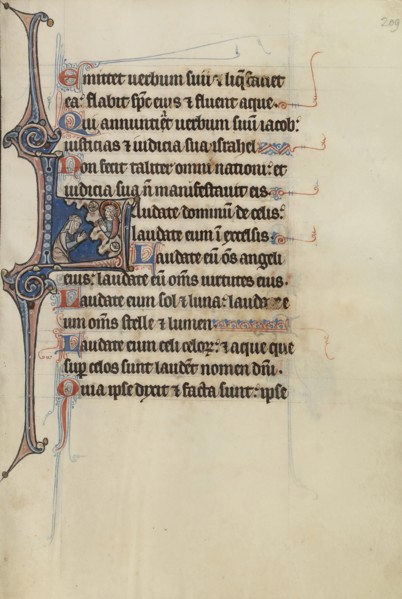 209
Emittet uerbum suũ ⁊ liq̃facIet
ea: flabit sp̃c eius ⁊ fluent aque.
Qui annuntiet uerbum suũ iacob:
iusticias ⁊ iudicia sua israhel
Non fecit taliter omni nationi: et
iudicia sua ñ manifestauit eis
Laudate dominũ de celis:
laudate eum ĩ excelsis
Laudate eũ õs angeli
eius: laudate eũ om̃s uirtutes eius.
Laudate eum sol ⁊ luna: lauda e
um om̃s stelle ⁊ lumen
Laudate eum celi celoꝝ: ⁊ aque que
sup celos sunt laudẽt nomen dñi.
Quia ipse dixit ⁊ facta sunt: ipse